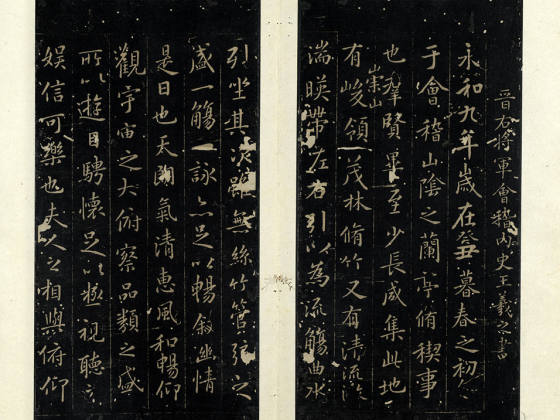 晉右將軍會稽內史王羲之書
永和九年歲在癸丑暮春之初
于會稽山陰之蘭亭脩稧事
也羣賢畢至少長咸集此地
有崇山峻領茂林脩竹又有清流激
湍暎帶左右引以為流觴曲水
列坐其次雖無絲竹管弦之
盛一觴一詠亦足以暢敘幽情
是日也天朗氣清惠風和暢仰
觀宇宙之大俯察品類之盛
所以遊目騁懷足以極視聽之
娛信可樂也夫人之相與俯仰